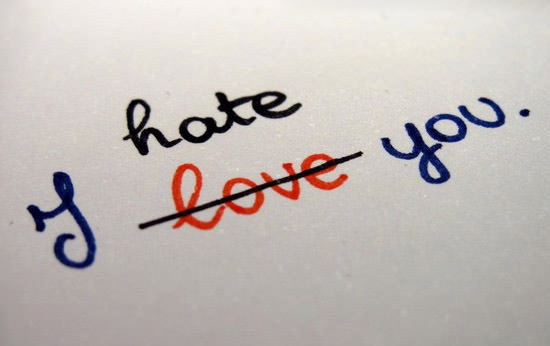 hate
I love you.